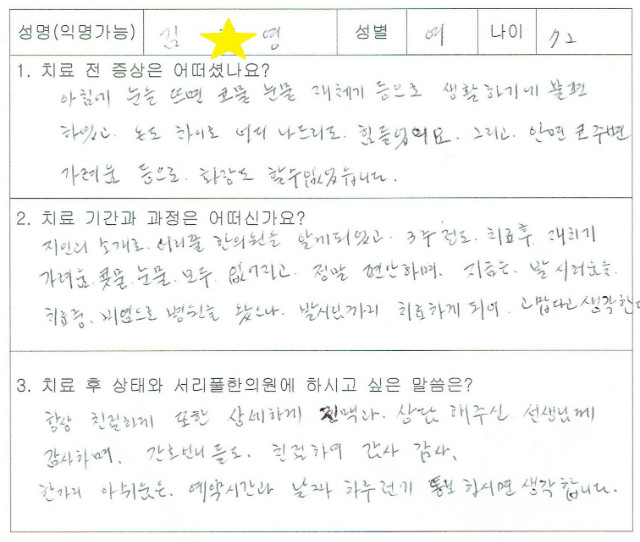 성명(익명가능) 김 영 성별 여 나이 72
1. 치료 전 증상은 어떠셨나요?
아침에 눈을 뜨면 코물 눈물 재체기 등으로 생활하기에 불편
하였고. 눈도 하이로 어디 나드리도. 힘들었어요. 그리고. 안면 코주변
가려움 등으로. 화장도 할수없었습니다.
2. 치료 기간과 과정은 어떠신가요?
지인의 소개로. 서리풀 한의원을 알게되었고. 3주 정도. 치료후. 재치기
가려움. 콧물. 눈물. 모두. 없어지고. 정말 편안하며. 지금은. 발 시러움을.
치료중. 비염으로 병원을 왔으나. 발시님까지 치료하게 되어. 고맙다고 생각한다
3. 치료 후 상태와 서리풀한의원에 하시고 싶은 말씀은?
항상 친절하게 또한 상세하게 진맥과. 상담 해주신 선생님께
감사하며. 간호언니들도. 친절하여 감사 감사.
한가지 아쉬웂은. 예약시간과 날짜 하루전기 통보 하시면 생각합니다.